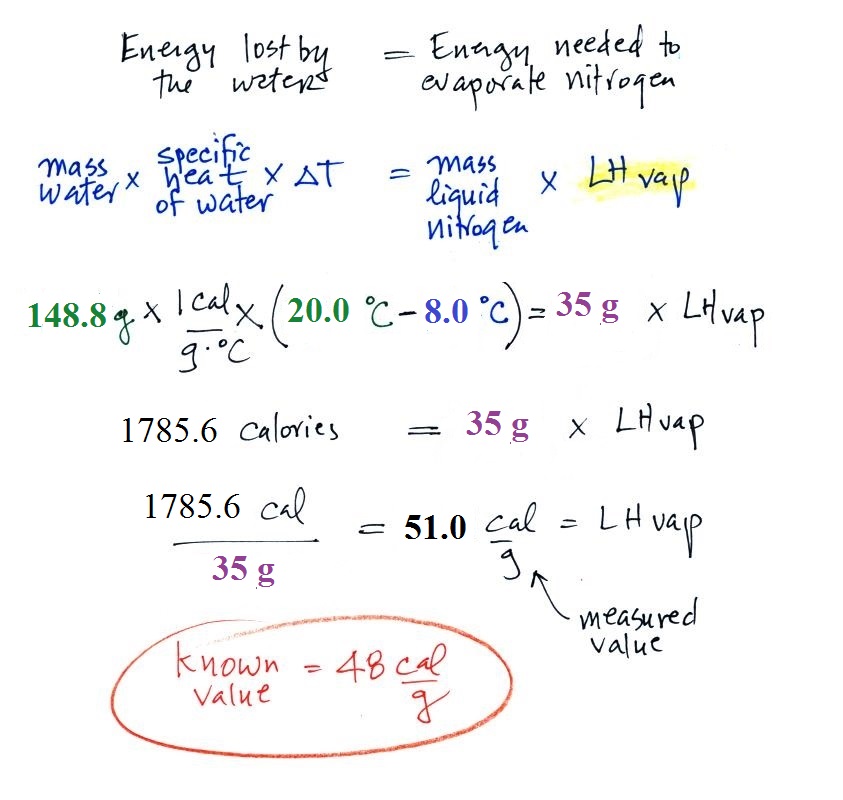 Energy lost by the water = Energy needed to evaporate nitrogen
mass water x specific heat of water x ΔT = mass liquid nitrogen x LH vap
148.8 g x 1 cal / g·°C x (20.0 °C - 8.0 °C) = 35 g x LH vap
1785.6 calories = 35 g x LH vap
1785.6 cal / 35 g = 51.0 cal / g = LH vap
measured value
known value = 48 cal / g